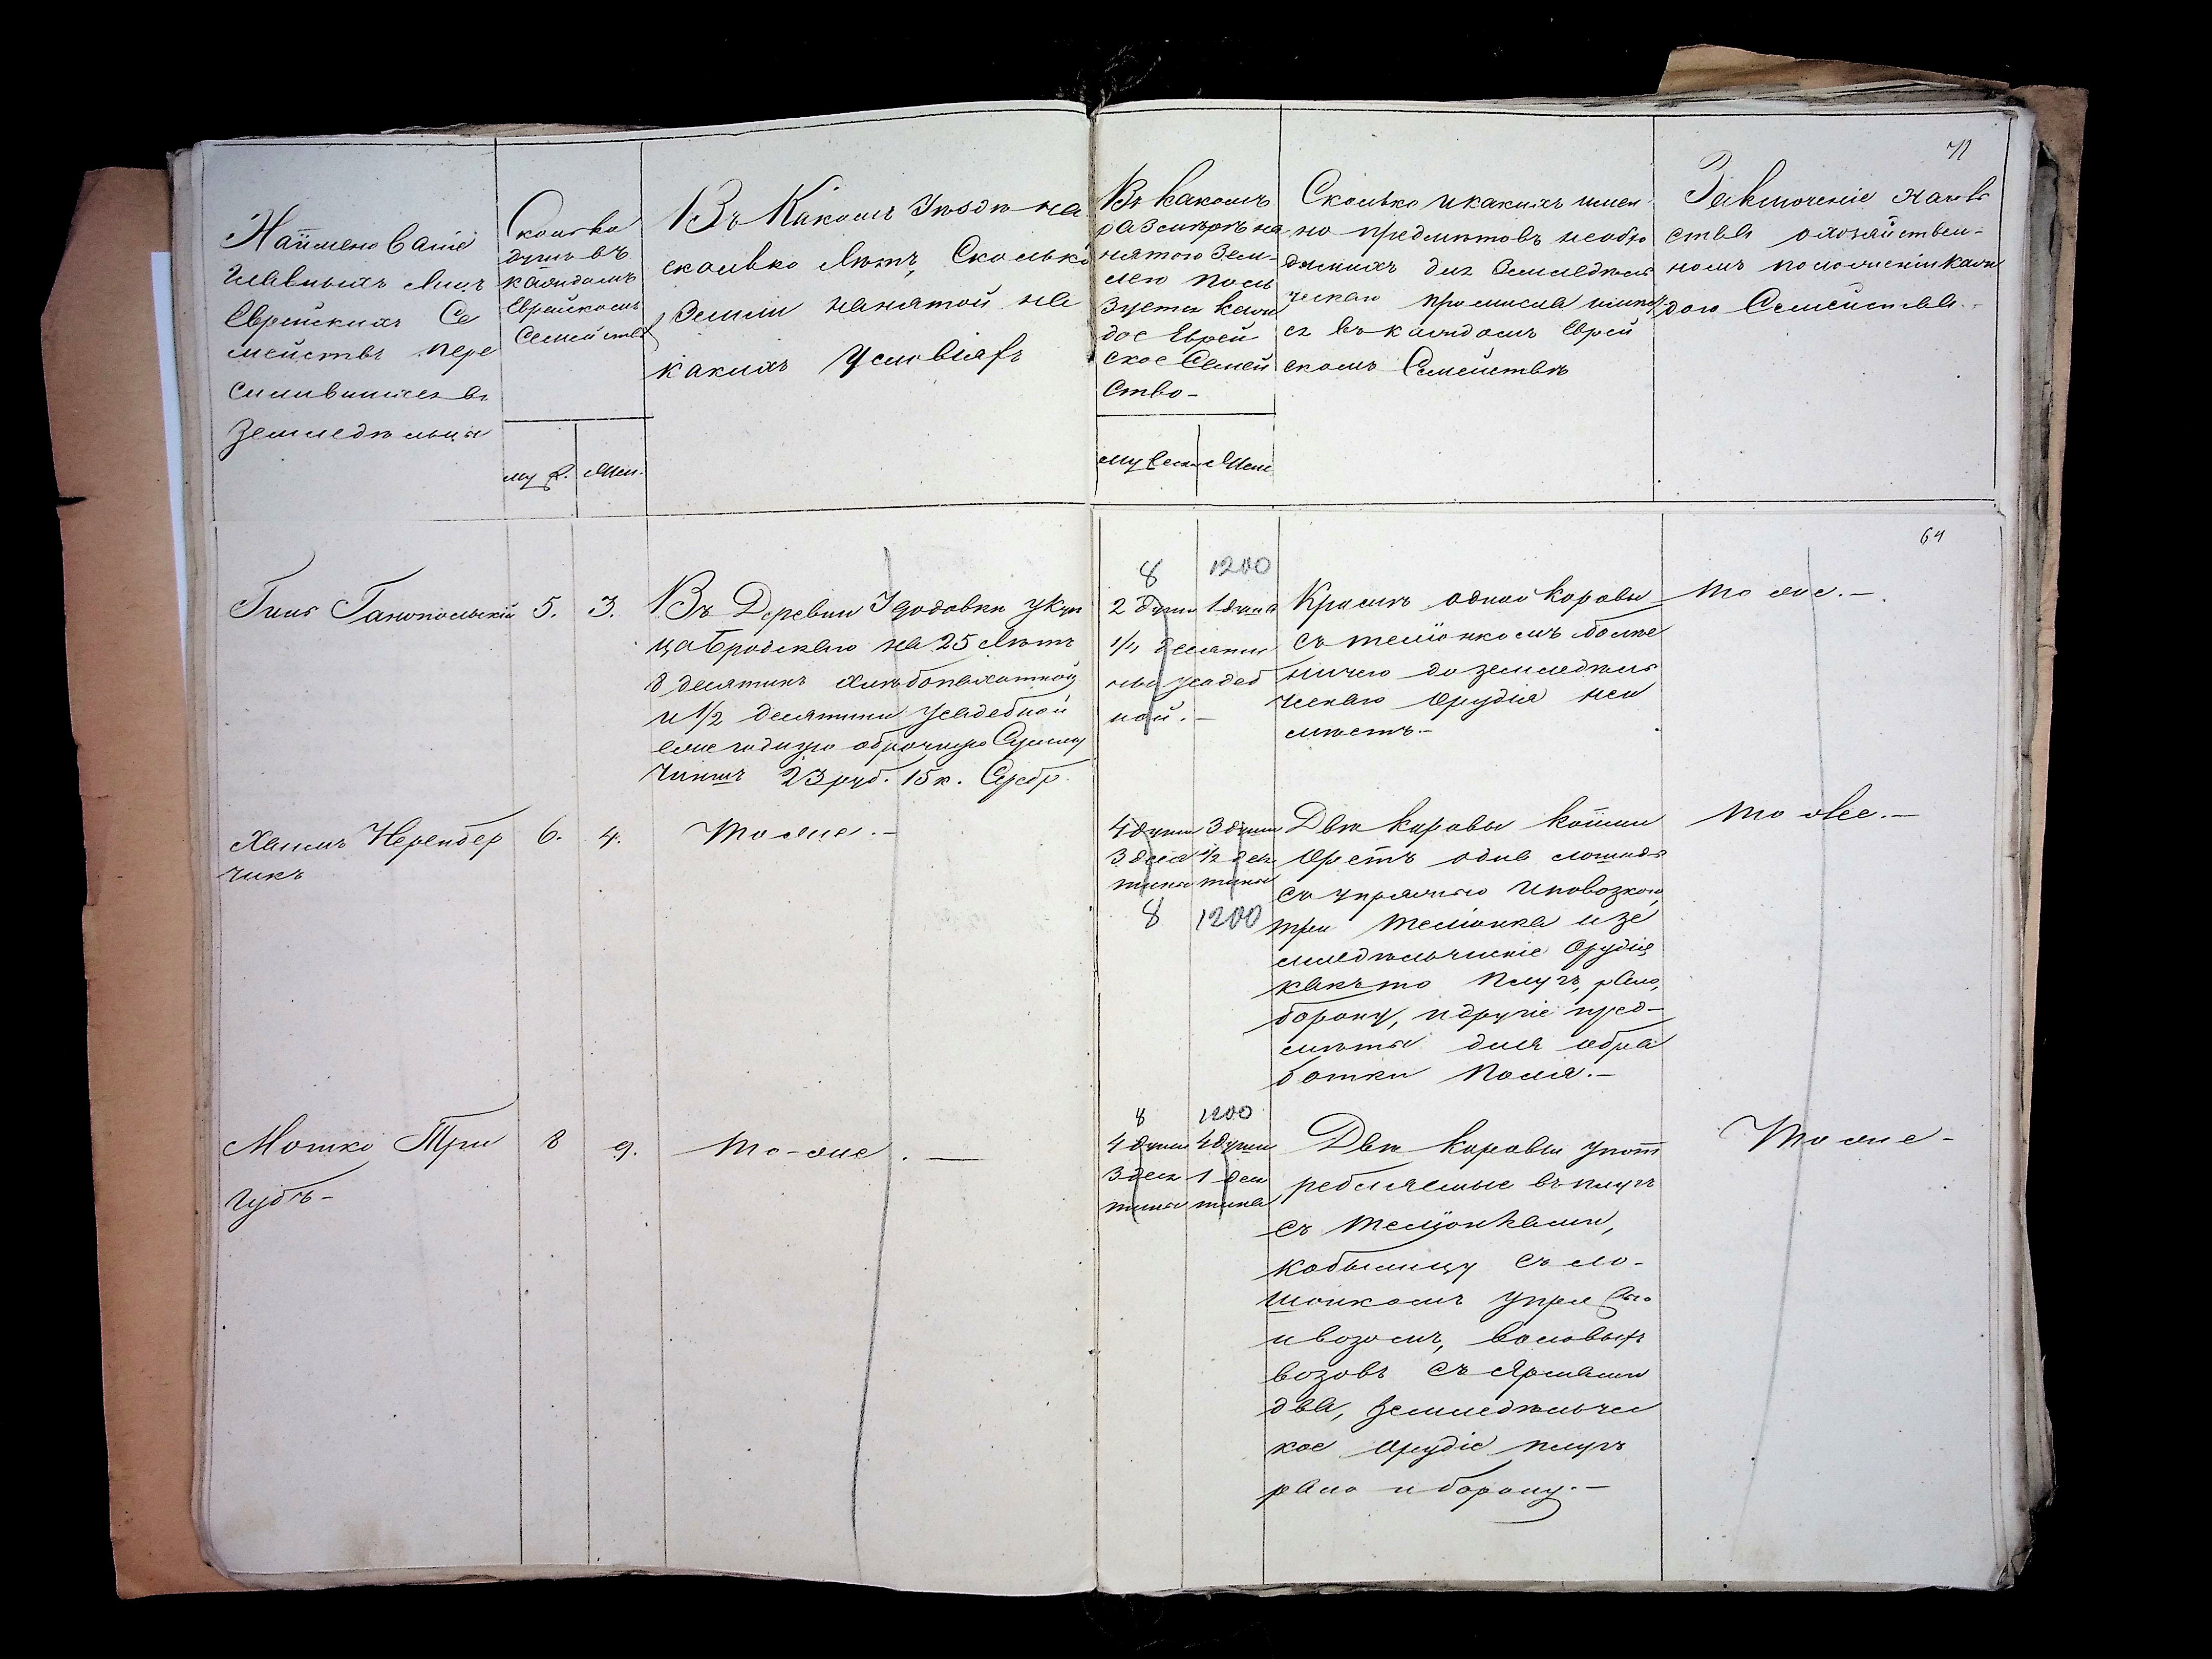 71
Наименованіе
Главныхъ лицъ
Еврейскихъ Се
мействъ пере
силившихся въ
Земледѣльцы
Сколько
душъ въ
каждомъ
Еврейскомъ
Семействѣ
муж.
Жен.
Въ Какомъ Уѣздѣ на
сколько лѣтъ, Сколько
Земли нанятой на
какихъ Условіяхъ
Въ какомъ
размѣрѣ на
нятого Зем-
лею поль
зуетъ каж
дое Еврей
ское Семей
ство-
мужеск
Жен
Сколько и какихъ имен
но предметовъ необхо
димыхъ для Земледѣль
ческаго промысла имеет
ся въ каждомъ Еврей
скомъ Семействѣ
Заключеніе Началь
ства о хозяйствен-
номъ положеніи каж
дого Семейства.-
64
Гиль Ганопольскій
5.
3.
Въ Деревни у куп
ца Бродскаго на 25 Лѣтъ
8 десятинъ хлѣбопахотной
и 1/2 десятини Усадебной
ежегодную оброчную Сумму
Чиншъ 23 руб. 15 к. Серебр.
8
1200
2 души
1 душа
1/4 десяти
ны усадеб
ной.-
Кромѣ одной коровы
съ телюнкомъ болѣе
ничего до земледѣль
ческаго Орудія неи
мѣетъ.-
то же.-
Хаимъ Черенбер
чикъ
6.
4.
то же.-
4 души
3 души
3 деся
1/2 деся
тины
тины
8
1200
Двѣ коровы коими
Оретъ одна лошадь
съ упряжью и повозкою,
три телюнка и зе
мледѣльчискіе Орудія
какъ то плугъ, рало,
борону, и другіе пред-
мѣты для обра
ботки Поля.-
то же.-
Мошко Три
губъ-
8
9.
то-же.-
8
1200
4 души
4 души
3 деся
1 деся
тины
тина
Двѣ коровы упот
ребляемые въ плугъ
съ телюнками,
кобылицу съ ло-
шонкомъ упряжью
и возомъ, воловыхъ
возовъ съ Ярмами
два, Земледѣльчес
кое Орудіе плугъ
рало и борону.-
То же-